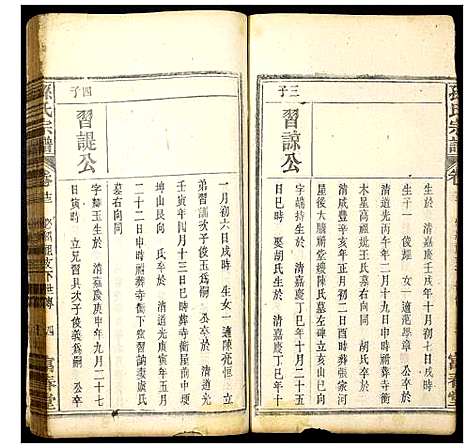 孫氏宗譜
卷
富春堂
生於 清嘉慶壬戌年十月初十日戌時
生子一俊經 生女一適范學章
三子
習諒公
字端持生於 清嘉慶丁巳年十二月二十五
日巳時 娶胡氏生於 清嘉慶丁巳年
清道光六年二月十九日申時 公卒於
木星高湖王氏墓右向同 胡氏卒於
清咸豐辛亥年正月初二日酉時葬張家河
屋後大塘祠堂後陳氏墓左碑立亥山巳向
一月初六日戌時 生女一適陳光恒
弟習謨次子俊玉為嗣 公卒於 清道光
壬寅年四月十三日巳時葬寺衝屋前中塝
坤山艮向 氏卒於 清道光
二十二日申時祔葬寺衝習謨妻虞氏
墓右向同
四子
習諟公
字韓玉生於 清嘉慶庚申年九月二十七
日寅時 立兄習具次子俊義為嗣 公卒
孫氏宗譜
卷
下世傳
四
富春堂